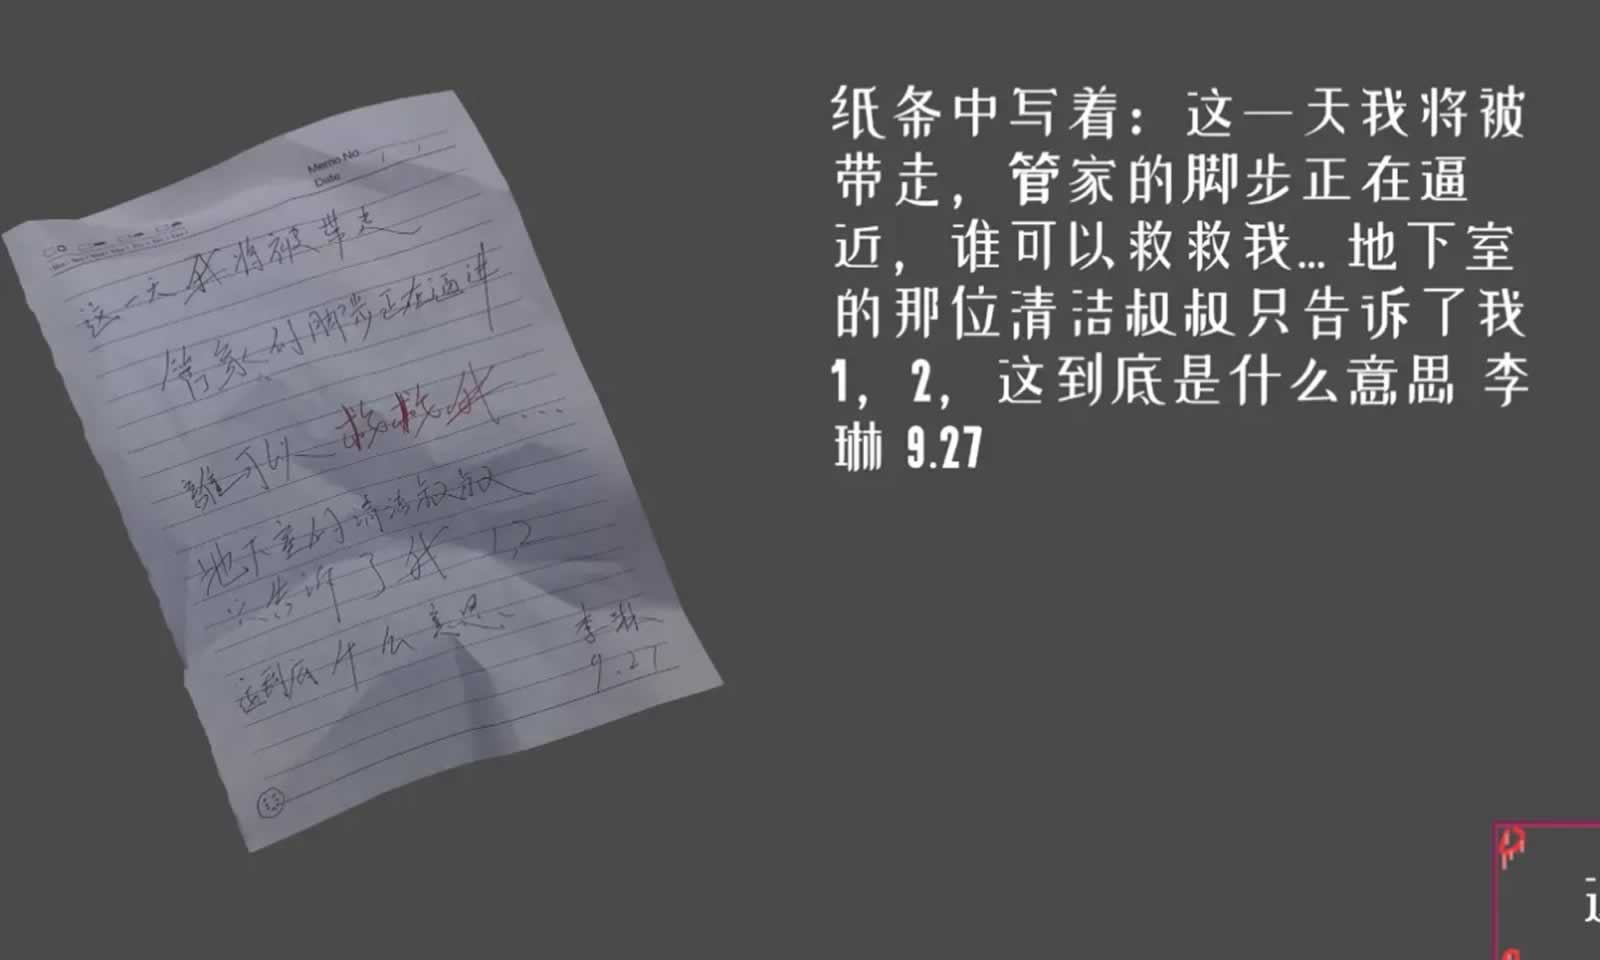 Memo No.
Date
这一天我将被带走
管家的脚步正在逼进
誰可以 救救我...
地下室的清洁叔叔
只告诉了我 1,2
这到底什么意思
李琳
9.27
纸条中写着：这一天我将被
带走，管家的脚步正在逼
近，谁可以救救我... 地下室
的那位清洁叔叔只告诉了我
1，2，这到底是什么意思 李
琳 9.27